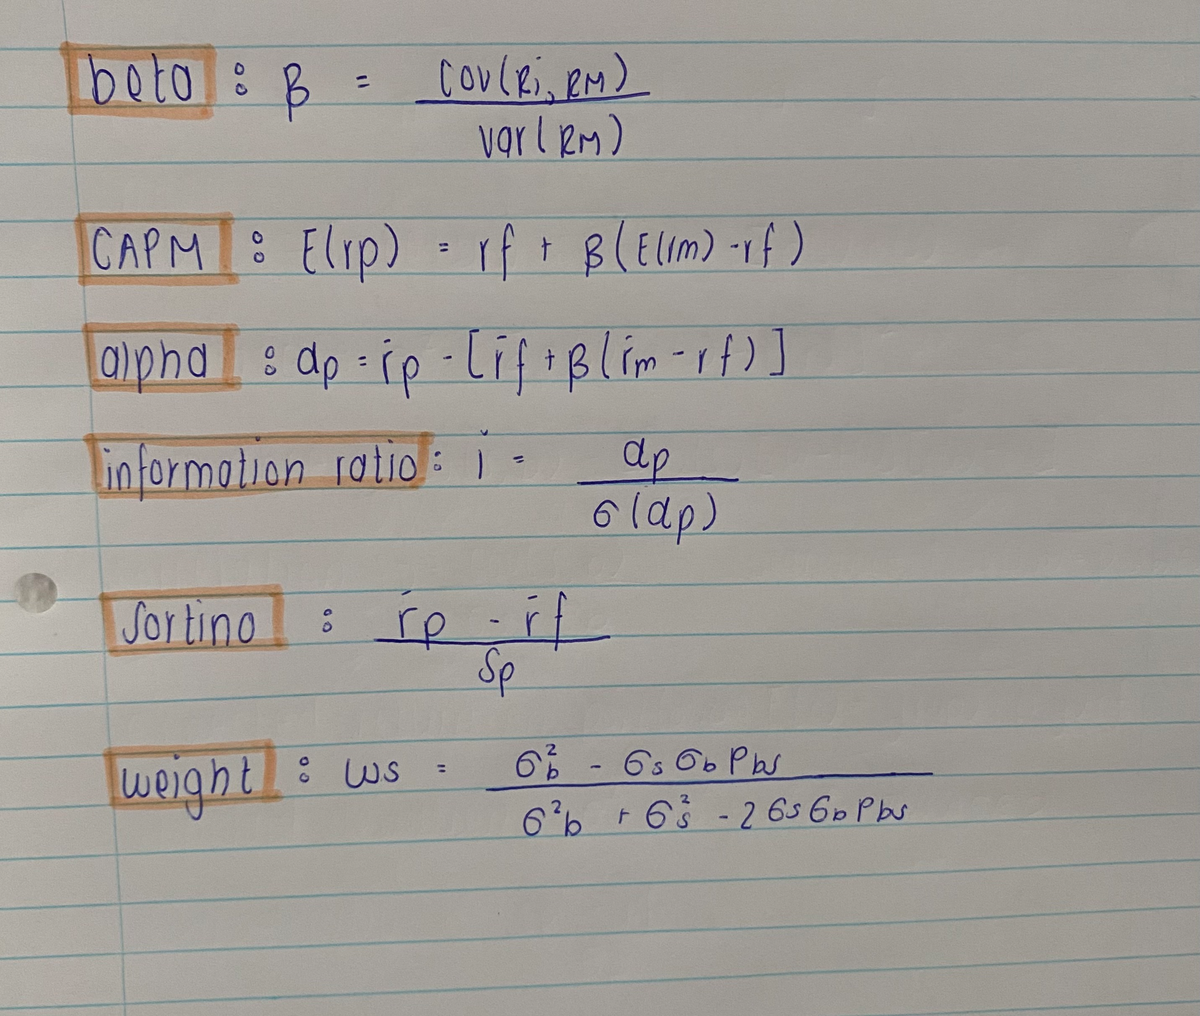 beta : β = cov(Ri, RM) / var(RM)
CAPM : E(rp) = rf + β(E(rm) - rf)
alpha : αp = r̄p - [r̄f + β(r̄m - r̄f)]
information ratio : i = αp / σ(αp)
Sortino : r̄p - r̄f / Sp
weight : ws = σ²b - σs σb ρbs / σ²b + σ²s - 2 σs σb ρbs